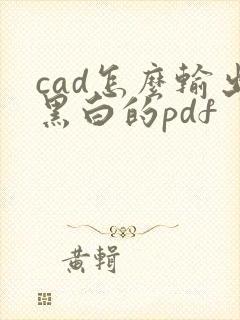 cad怎麼輸出
黑白的pdf
黄輯